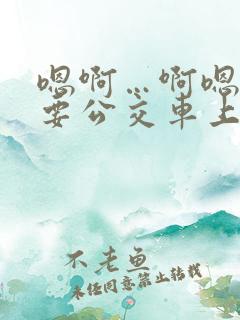 嗯啊…啊嗯
要公交车上
不老鱼
未经同意禁止转载